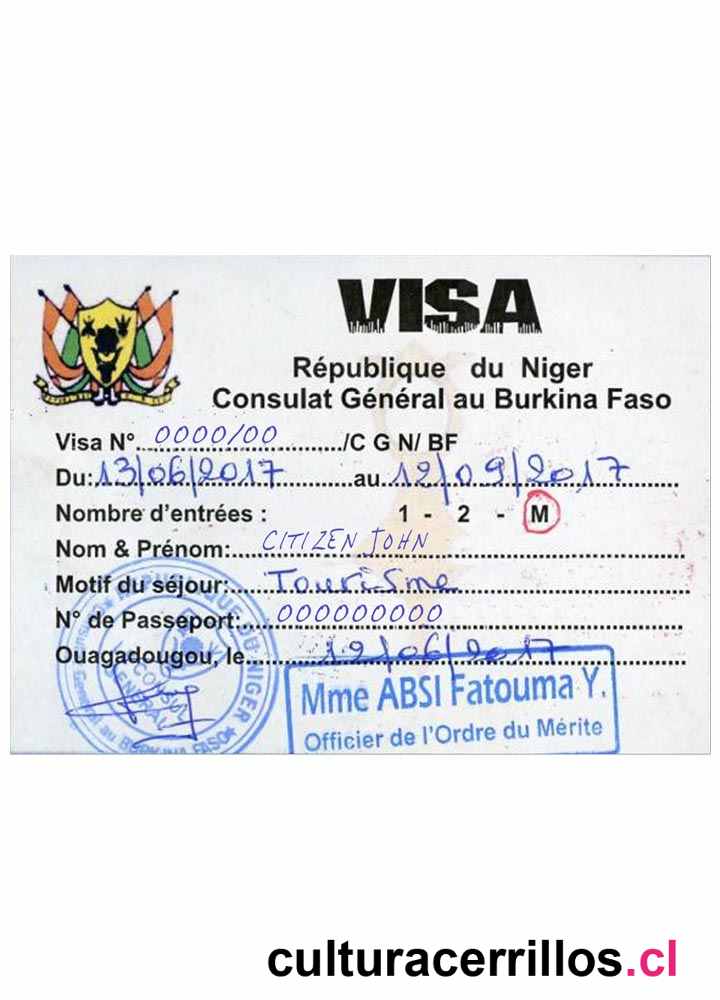 VISA
République du Niger
Consulat Général au Burkina Faso
Visa N° 0000/00 /C G N/ BF
Du: 13/06/2017 au 12/09/2017
Nombre d'entrées : 1 - 2 - M
Nom & Prénom: CITIZEN JOHN
Motif du séjour: Tourisme
N° de Passeport: 000000000
Ouagadougou, le 12/06/2017
RÉPUBLIQUE DU NIGER
CONSUL
GÉNÉRAL
Général au BURKINA FASO
Mme ABSI Fatouma Y.
Officier de l'Ordre du Mérite
culturacerrillos.cl